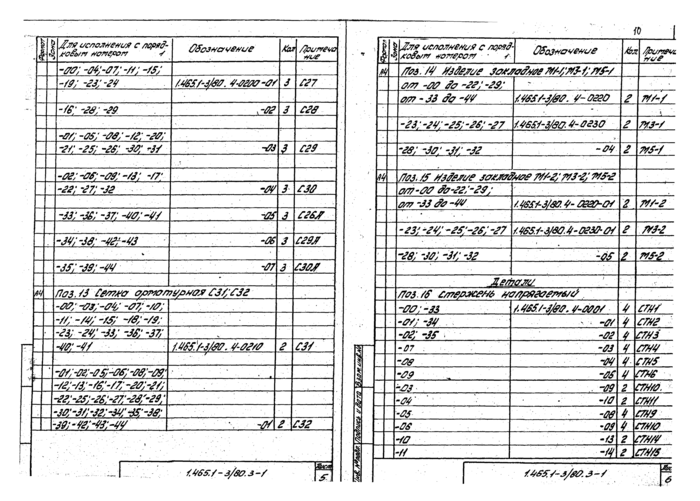 10
Формат Зона Для исполнения с поряд- ковым номером 1 Обозначение Кол Примеча ние
-00; -04; -07; -11; -15;
-19; -23; -24 1.465.1-3/80.4-0200-01 3 С27
-16; -28; -29 -02 3 С28
-01; -05; -08; -12; -20;
-21; -25; -26; -30; -31 -03 3 С29
-02; -06; -09; -13; -17;
-22; -27; -32 -04 3 С30
-33; -36; -37; -40; -41 -05 3 С26Л
-34; -38; -42; -43 -06 3 С29Л
-35; -39; -44 -07 3 С30Л
А4 Поз. 13 Сетка арматурная С31; С32
-00; -03; -04; -07; -10;
-11; -14; -15; -18; -19;
-23; -24; -33; -36; -37;
-40; -41 1.465.1-3/80.4-0210 2 С31
-01; -02; -05; -06; -08; -09;
-12; -13; -16; -17; -20; -21;
-22; -25; -26; -27; -28; -29;
-30; -31; -32; -34; -35; -38;
-39; -42; -43; -44 -01 2 С32
1.465.1-3/80.3-1
Лист
5
Формат Зона Для исполнения с поряд- ковым номером 1 Обозначение Кол. Примеча ние
А4 Поз. 14 Изделие закладное М1-1; М3-1; М5-1
от -00 до -22; -29;
от -33 до -44 1.465.1-3/80.4-0220 2 М1-1
-23; -24; -25; -26; -27 1.465.1-3/80.4-0230 2 М3-1
-28; -30; -31; -32 -04 2 М5-1
А4 Поз. 15 Изделие закладное М1-2; М3-2; М5-2
от -00 до -22; -29;
от -33 до -44 1.465.1-3/80.4-0220-01 2 М1-2
-23; -24; -25; -26; -27 1.465.1-3/80.4-0230-01 2 М3-2
-28; -30; -31; -32 -05 2 М5-2
Детали
Поз. 16 Стержень напрягаемый
-00; -33 1.465.1-3/80.4-0001 4 СТН1
-01; -34 -01 4 СТН2
-02; -35 -02 4 СТН3
-07 -03 4 СТН4
-08 -04 4 СТН5
-09 -05 4 СТН6
-03 -09 2 СТН10
-04 -10 2 СТН11
-05 -08 4 СТН9
-06 -09 4 СТН10
-10 -13 2 СТН14
-11 -14 2 СТН15
Инв. № подл. Подпись и дата Взам. инв. №
1.465.1-3/80.3-1
Лист
6